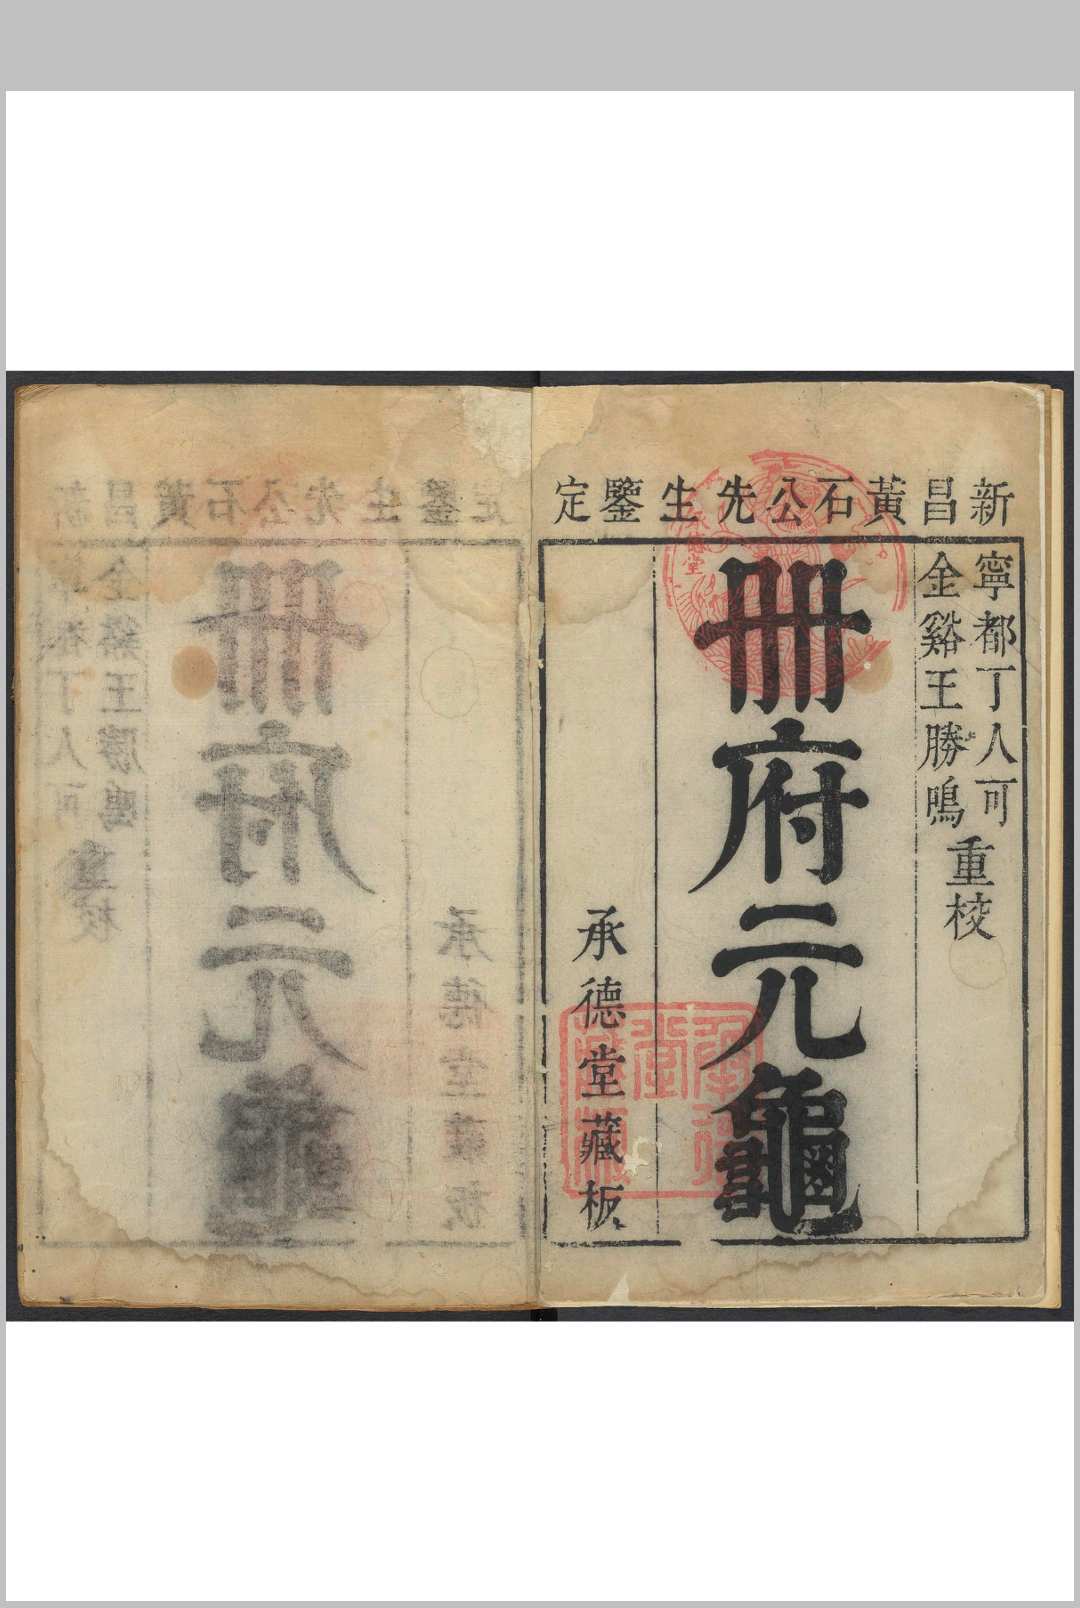 新昌黃石公先生鑒定
寧都丁人可
金谿王勝鳴
重校
冊府元龜
承德堂藏板